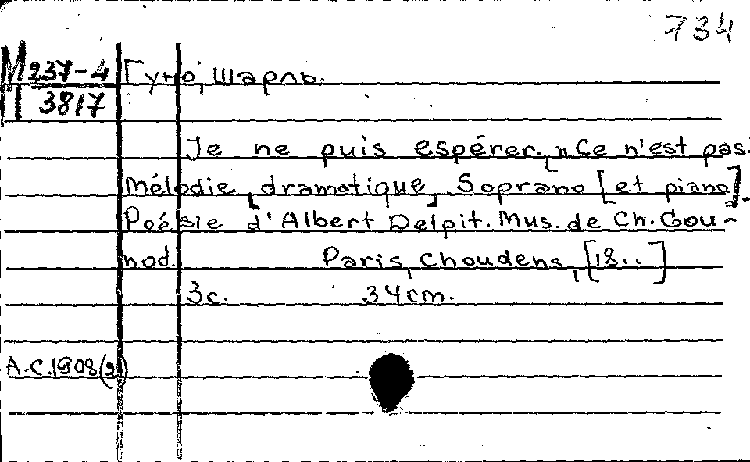 734
М 237-4
3817
Гуно, Шарль.
Je ne puis espérer. [„Ce n'est pas.
Mélodie [dramatique]. Soprano [et piano].
Poésie d'Albert Delpit. Mus. de Ch. Gou-
nod. Paris, Choudens, [18..]
3с. 34cm.
А.С.1908